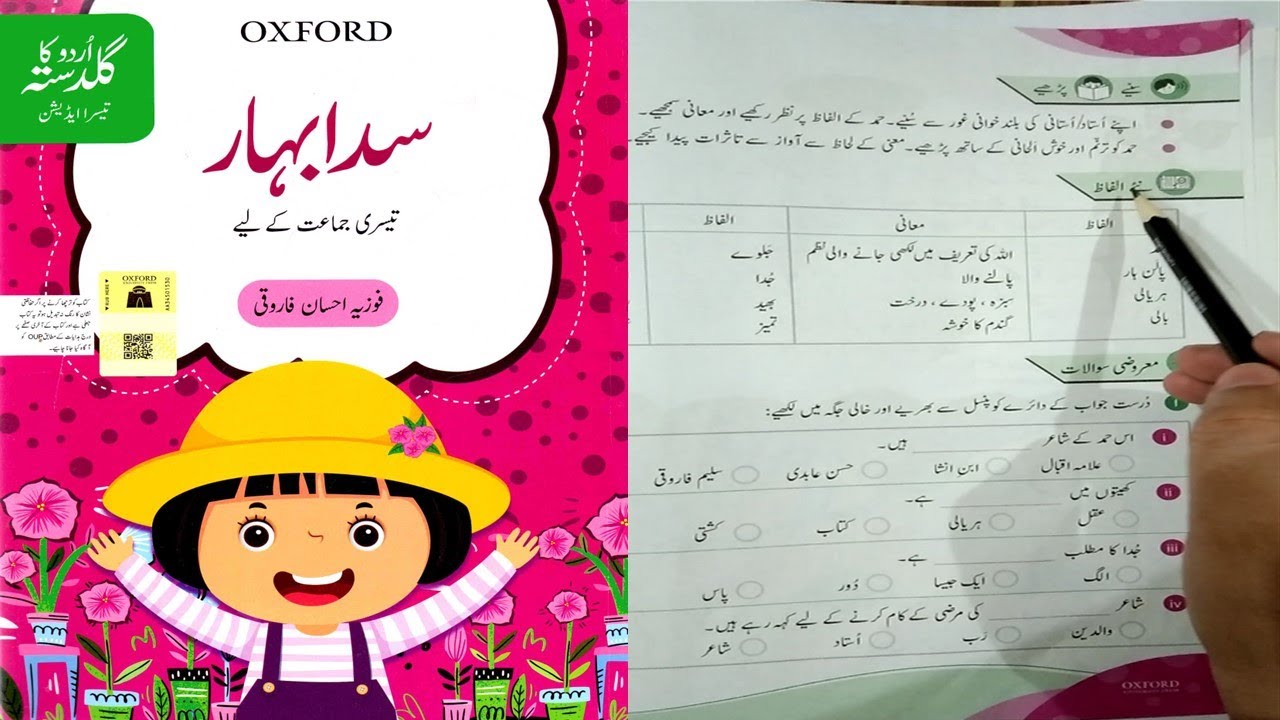 OXFORD
اُردو کا
گلدستہ
تیسرا ایڈیشن
سدابہار
تیسری جماعت کے لیے
فوزیہ احسان فاروقی
OXFORD
AA34501530
سنیے پڑھیے
اپنے اُستاد/اُستانی کی بلند خوانی غور سے سُنیے۔ حمد کے الفاظ پر نظر رکھیے اور معانی سمجھیے۔
حمد کو ترنّم اور خوش الحانی کے ساتھ پڑھیے۔ معنی کے لحاظ سے آواز سے تاثرات پیدا کیجیے
نئے الفاظ
الفاظ معانی الفاظ
اللہ کی تعریف میں لکھی جانے والی نظم جلوے
پالن ہار پالنے والا جُدا
ہریالی سبزہ، پودے، درخت بھید
بالی گندم کا خوشہ تمیز
معروضی سوالات
۱ دُرست جواب کے دائرے کو پنسل سے بھریے اور خالی جگہ میں لکھیے:
i اس حمد کے شاعر ________ ہیں۔
علامہ اقبال ابنِ انشا حسن عابدی سلیم فاروقی
ii کھیتوں میں ________ ہے۔
عقل ہریالی کتاب کشتی
iii جُدا کا مطلب ________ ہے۔
الگ ایک جیسا دُور پاس
iv شاعر ________ کی مرضی کے کام کرنے کے لیے کہہ رہے ہیں۔
والدین رَب اُستاد شاعر
OXFORD